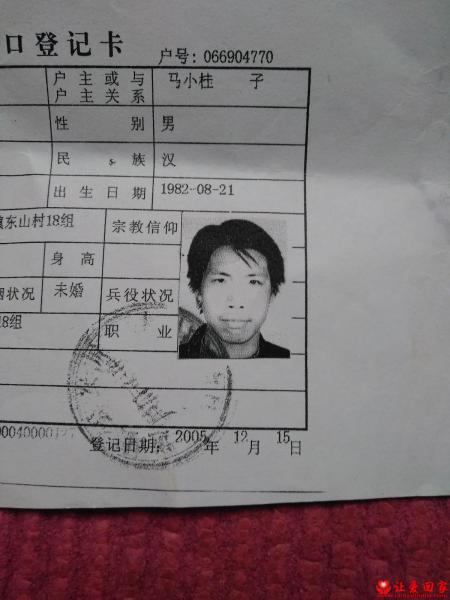 口登记卡
户号: 066904770
户主或与
户主关系
马小桂 子
性 别 男
民 族 汉
出生日期 1982-08-21
东山村18组 宗教信仰
身高
状况 未婚 兵役状况
8组 职 业
登记日期: 2005年 12月 15日
让爱回家